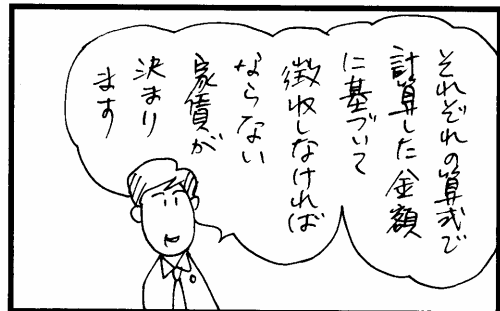 それぞれの算式で
計算した金額
に基づいて
徴収しなければ
ならない
家賃が
決まり
ます